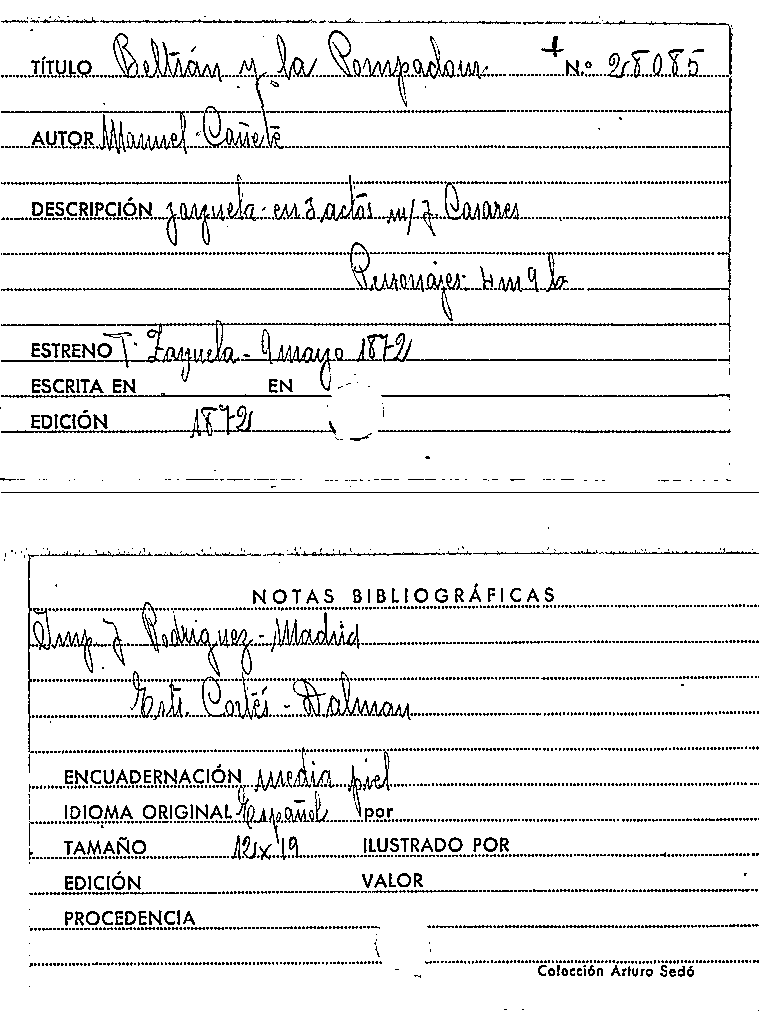 TÍTULO Beltrán y la Pompadour. + N.º 28085
AUTOR Manuel - Cañete
DESCRIPCIÓN zarzuela - en 3 actos m/ J. Casares
Personajes: 4 m 9 h
ESTRENO T. Zarzuela - 9 mayo 1872
ESCRITA EN EN
EDICIÓN 1872
NOTAS BIBLIOGRÁFICAS
Imp. J. Rodriguez - Madrid
Cortés - Dalmau
ENCUADERNACIÓN media piel
IDIOMA ORIGINAL Español por
TAMAÑO 12 x 19 ILUSTRADO POR
EDICIÓN VALOR
PROCEDENCIA
Colección Arturo Sedó